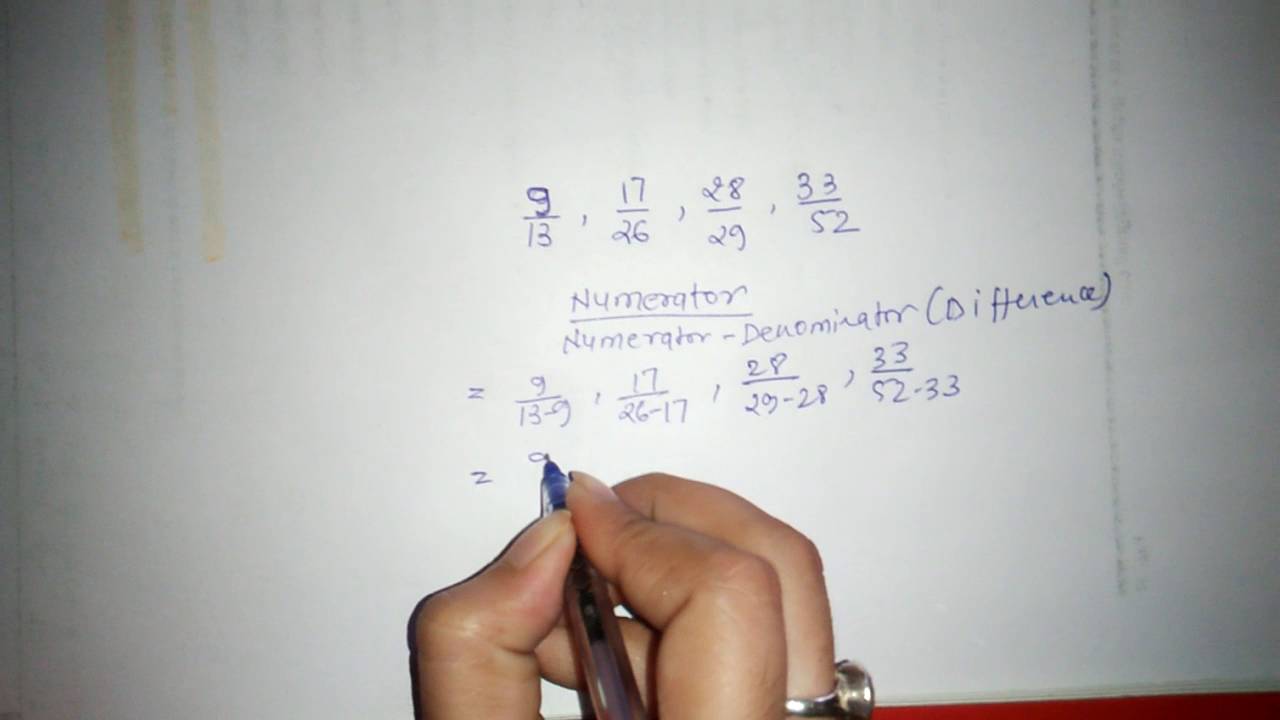 9/13 , 17/26 , 28/29 , 33/52
Numerator
Numerator - Denominator (Difference)
= 9/13-9 , 17/26-17 , 28/29-28 , 33/52-33
= 9